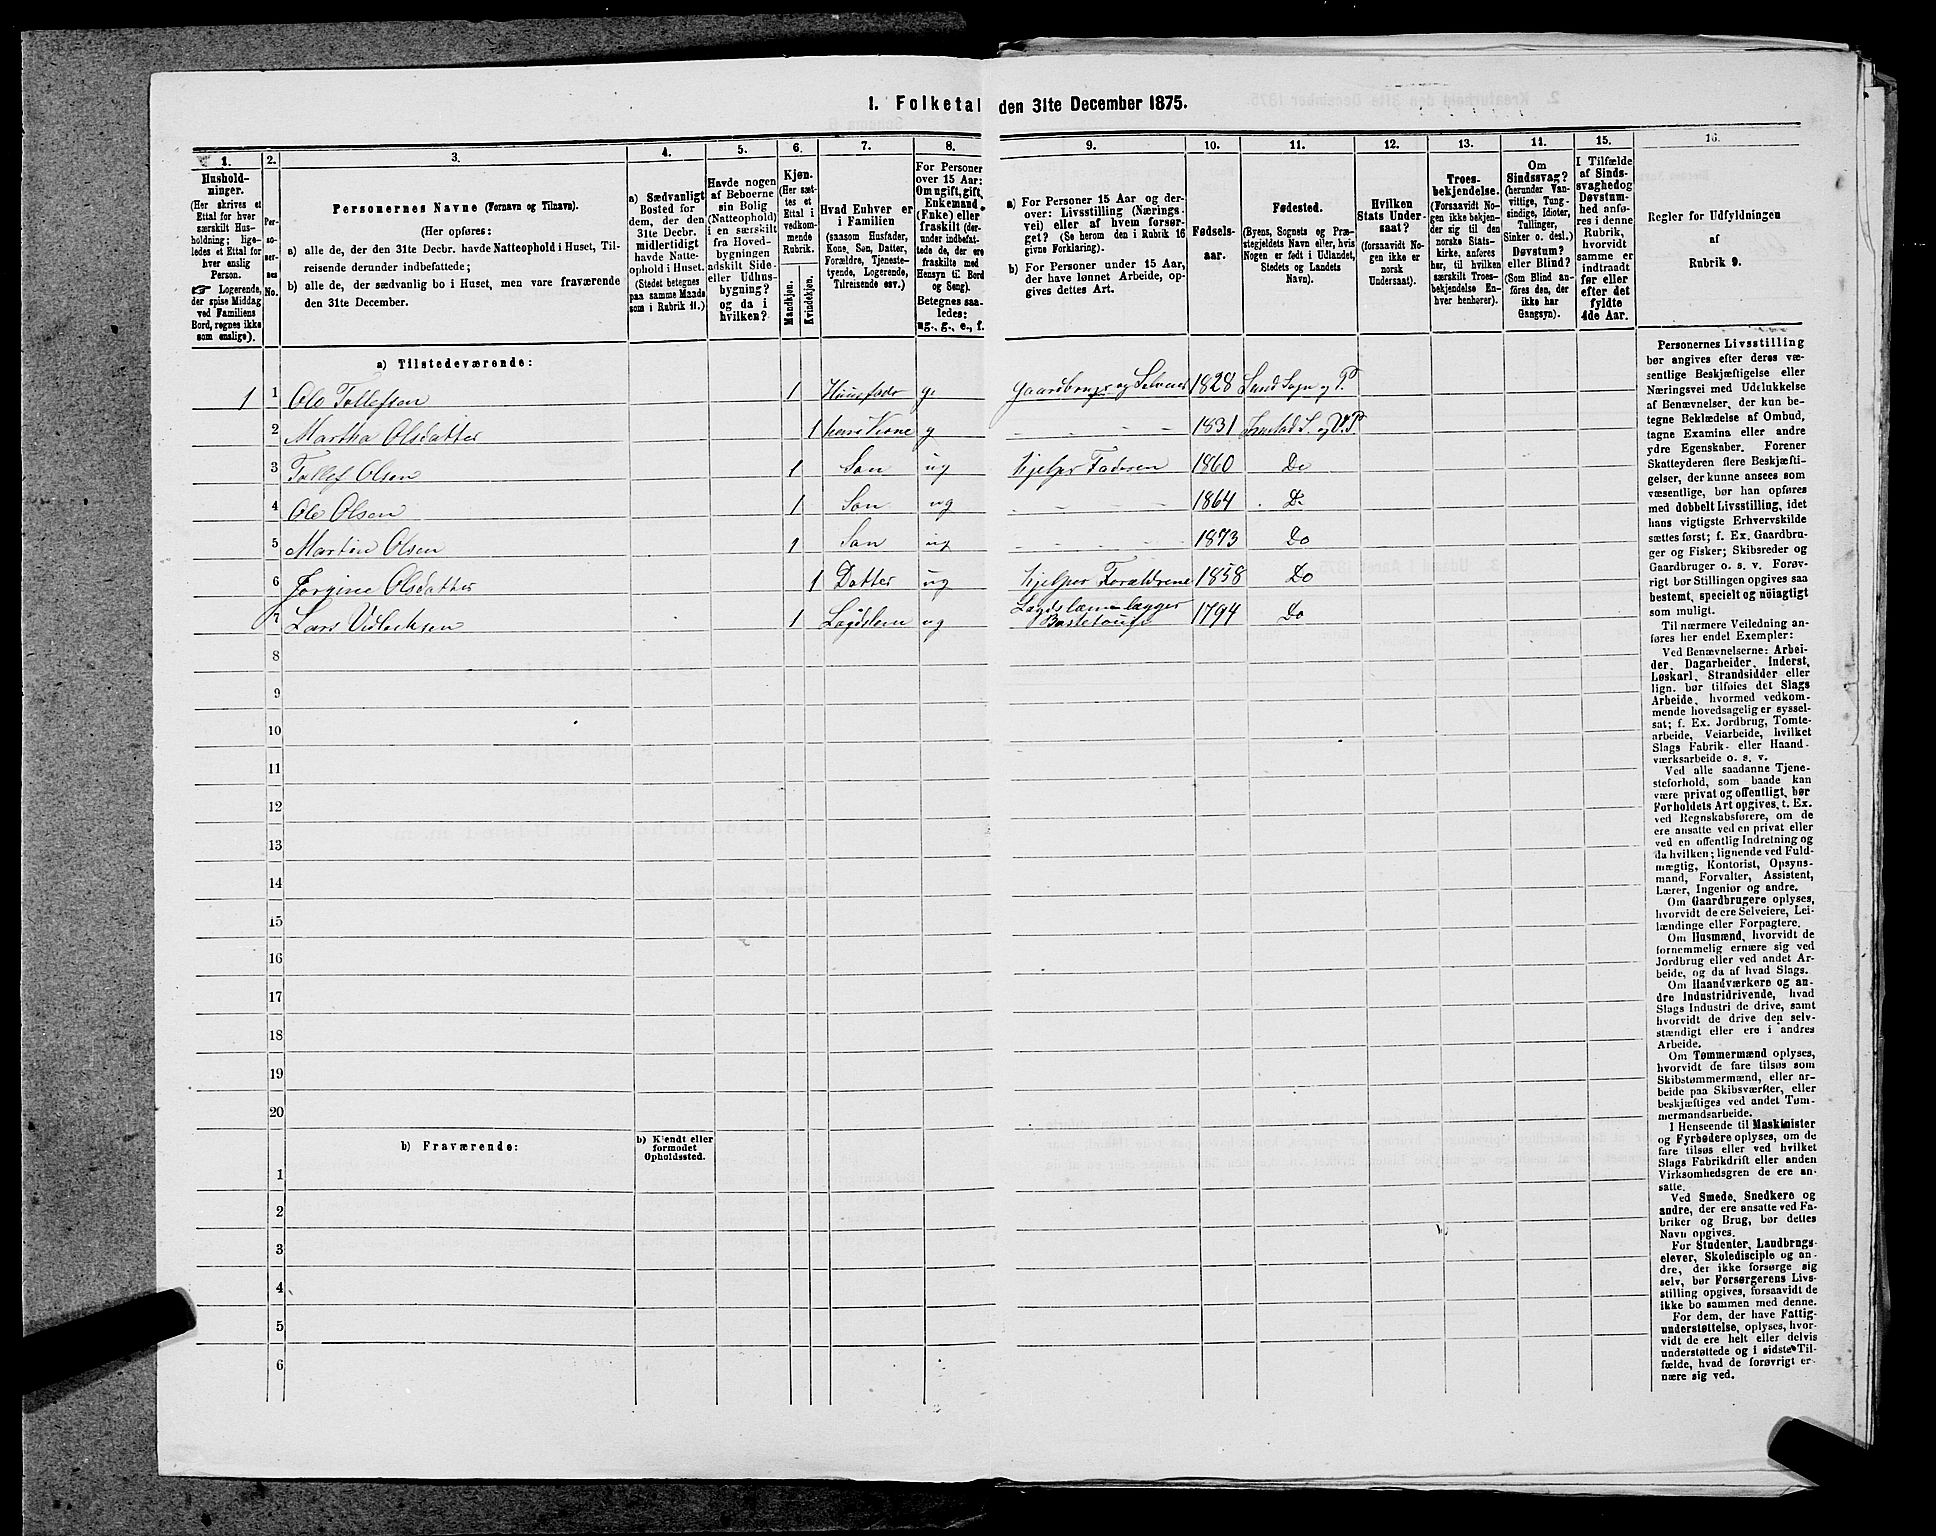 1. Folketal den 31te December 1875.
1.
Hushold-
ninger.
(Her skrives et
Ettal for hver
særskilt Hus-
holdning; lige-
ledes et Ettal for
hver enslig
Person.
☞ Logerende,
der spise Middag
ved Familiens
Bord, regnes ikke
som enslige).
2.
Per-
so-
ner-
nes
No.
3.
Personernes Navne (Fornavn og Tilnavn).
(Her opføres:
a) alle de, der den 31te Decbr. havde Natteophold i Huset, Til-
reisende derunder indbefattede;
b) alle de, der sædvanlig bo i Huset, men vare fraværende
den 31te December.
4.
a) Sædvanligt
Bosted for
dem, der den
31te Decbr.
midlertidigt
havde Natte-
ophold i Huset.
(Stedet betegnes
paa samme Maade
som i Rubrik 11.)
5.
Havde nogen
af Beboerne
sin Bolig
(Natteophold)
i en særskilt
fra Hoved-
bygningen
adskilt Side-
eller Udhus-
bygning?
og da i
hvilken?
6.
Kjøn.
(Her sæt-
tes et
Ettal i
vedkom-
mende
Rubrik.
Mandkjøn.
Kvindekjøn.
7.
Hvad Enhver er
i Familien
(saasom Husfader,
Kone, Søn, Datter,
Forældre, Tjeneste-
tyende, Logerende,
Tilreisende osv.)
8.
For Personer
over 15 Aar:
Om ugift, gift,
Enkemand
(Enke) eller
fraskilt (der-
under indbefat-
tede de, der ere
fraskilte med
Hensyn til Bord
og Seng).
Betegnes saa-
ledes:
ug., g., e., f.
9.
a) For Personer 15 Aar og der-
over: Livsstilling (Nærings-
vei) eller af hvem forsør-
get? (Se herom den i Rubrik 16
givne Forklaring).
b) For Personer under 15 Aar,
der have lønnet Arbeide, op-
gives dettes Art.
10.
Fødsels-
aar.
11.
Fødested.
(Byens, Sognets og Præ-
stegjeldets Navn eller, hvis
Nogen er født i Udlandet,
Stedets og Landets
Navn).
12.
Hvilken
Stats Under-
saat?
(forsaavidt No-
gen ikke er
norsk
Undersaat).
13.
Troes-
bekjendelse.
(Forsaavidt No-
gen ikke bekjen-
der sig til den
norske Stats-
kirke, anføres
her, til hvilken
særskilt Troes-
bekjendelse En-
hver henhører).
14.
Om
Sindssvag?
(herunder Van-
vittige, Tung-
sindige, Idioter,
Tullinger,
Sinker o. desl.)
Døvstum?
eller Blind?
(Som Blind an-
føres den, der
ikke har
Gangsyn).
15.
I Tilfælde
af Sinds-
svaghed og
Døvstum-
hed anfø-
res i denne
Rubrik,
hvorvidt
samme er
indtraadt
før eller
efter det
fyldte
4de Aar.
16.
Regler for Udfyldningen
af
Rubrik 9.
a) Tilstedeværende:
1 1 Ole Tollefsen 1 Huusfader g. Gaardbruger og Selveier 1828 Lund Sogn og P.
2 Martha Olsdatter 1 hans Kone g - - - 1831 S. og P.
3 Tollef Olsen 1 Søn ug Hjelper Faderen 1860 Do
4 Ole Olsen 1 Søn ug - - - 1864 Do
5 Martin Olsen 1 Søn ug - - - 1873 Do
6 Jorgine Olsdatter 1 Datter ug Hjelper Forældrene 1858 Do
7 Lars 1 Lægdslem ug Lægdslem lægger 1794 Do
8
9
10
11
12
13
14
15
16
17
18
19
20
b) Fraværende:
b) Kjendt eller
formodet
Opholdssted.
1
2
3
4
5
6
Personernes Livsstilling
bør angives efter deres væ-
sentlige Beskjæftigelse eller
Næringsvei med Udelukkelse
af Benævnelser, der kun be-
tegne Beklædelse af Ombud,
tagne Examina eller andre
ydre Egenskaber. Forener
Skatteyderen flere Beskjæfti-
gelser, der kunne ansees som
væsentlige, bør han opføres
med dobbelt Livsstilling, idet
hans vigtigste Erhvervskilde
sættes først; f. Ex. Gaardbru-
ger og Fisker; Skibsreder og
Gaardbruger o. s. v. Forøv-
rigt bør Stillingen opgives saa
bestemt, specielt og nøiagtigt
som muligt.
Til nærmere Veiledning an-
føres her endel Exempler:
Ved Benævnelserne: Arbei-
der, Dagarbeider, Inderst,
Løskarl, Strandsidder eller
lign. bør tilføies det Slags
Arbeide, hvormed vedkom-
mende hovedsagelig er syssel-
sat; f. Ex. Jordbrug, Tomte-
arbeide, Veiarbeide, hvilket
Slags Fabrik- eller Haand-
værksarbeide o. s. v.
Ved alle saadanne Tjene-
steforhold, som baade kan
være privat og offentligt, bør
Forholdets Art opgives, t. Ex.
ved Regnskabsførere, om de
ere ansatte ved en privat eller
ved en offentlig Indretning og
da hvilken; lignende ved Fuld-
mægtig, Kontorist, Opsyns-
mand, Forvalter, Assistent,
Lærer, Ingeniør og andre.
Om Gaardbrugere oplyses,
hvorvidt de ere Selveiere, Lei-
lændinge eller Forpagtere.
Om Husmænd, hvorvidt de
fornemmelig ernære sig ved
Jordbrug eller ved andet Ar-
beide, og da af hvad Slags.
Om Haandværkere og an-
dre Industridrivende, hvad
Slags Industri de drive, samt
hvorvidt de drive den selv-
stændigt eller ere i andres
Arbeide.
Om Tømmermænd oplyses,
hvorvidt de fare tilsøs som
Skibstømmermænd, eller ar-
beide paa Skibsværfter, eller
beskjæftiges ved andet Tøm-
mermandsarbeide.
I Henseende til Maskinister
og Fyrbødere oplyses, om de
fare tilsøs eller ved hvilket
Slags Fabrikdrift eller anden
Virksomhedsgren de ere an-
satte.
Ved Smede, Snedkere og
andre, der ere ansatte ved Fa-
briker og Brug, bør dettes
Navn opgives.
For Studenter, Landbrugs-
elever, Skoledisciple og an-
dre, der ikke forsørge sig
selv, bør Forsørgerens Livs-
stilling opgives, forsaavidt de
ikke bo sammen med denne.
For dem, der have Fattig-
understøttelse, oplyses, hvor-
vidt de ere helt eller delvis
understøttede og i sidste Til-
fælde, hvad de forøvrigt er-
nære sig ved.